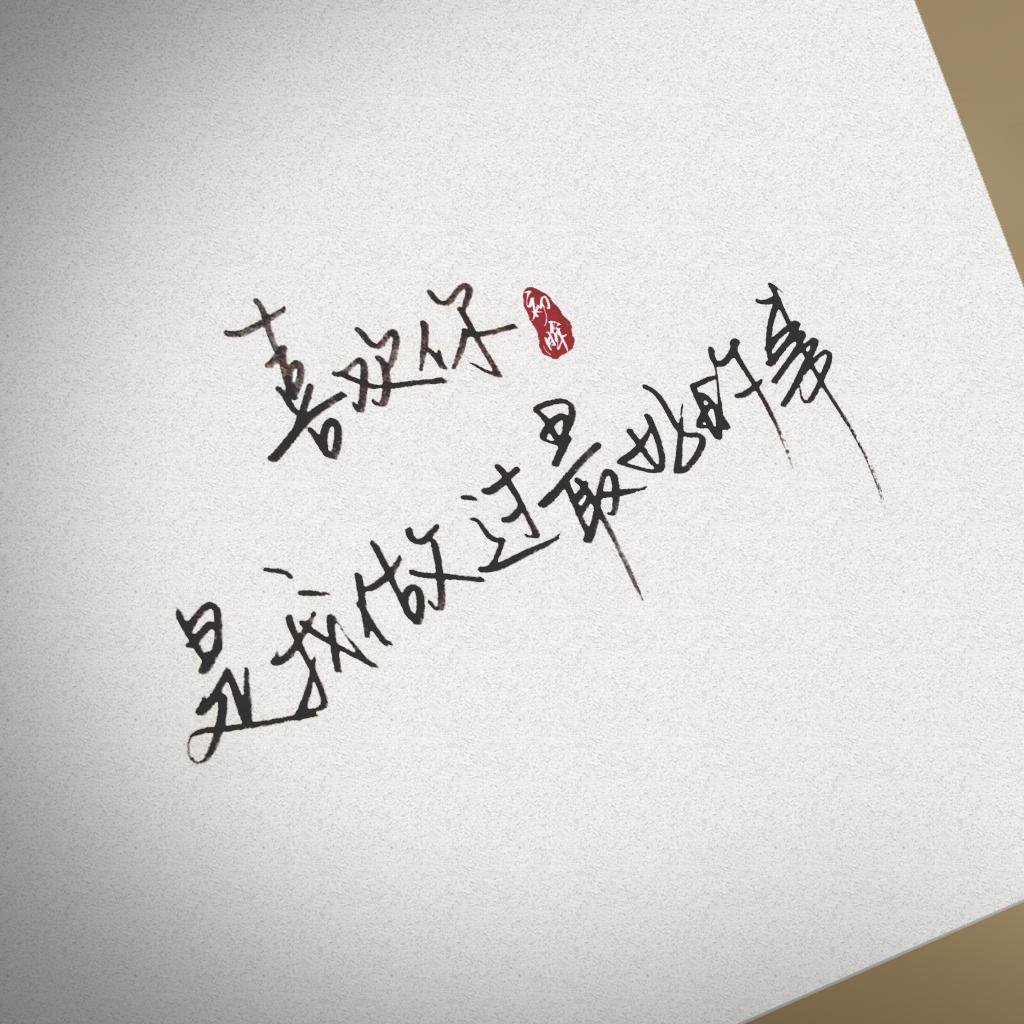 喜欢你
是我做过最好的事